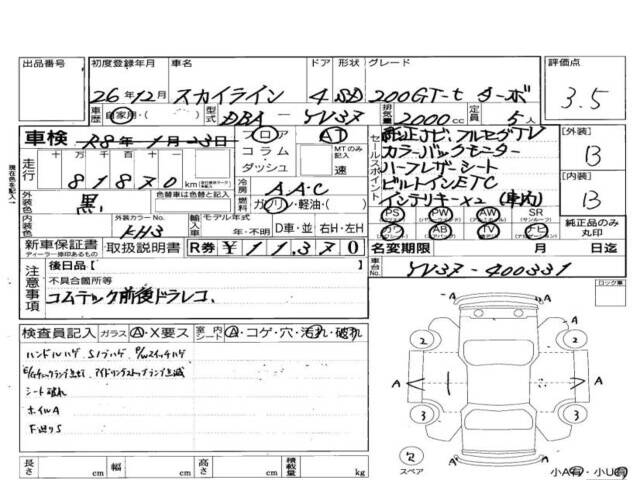 出品番号 初度登録年月 車名 ドア 形状 グレード 評価点
26年12月 スカイライン 4 SD 200GT-t ターボ 3.5
車歴 自家用・( ) 型式 DBA-YV37 排気量 2000cc 定員 5人
現在色を記入
車検 R8年1月23日 フロア AT
コラム
ダッシュ MTのみ記入 速
走行 十万 万 千 百 十
81870 km
セールスポイント
純正ナビ・フルセグTV
カラーバックモニター
ハーフレザーシート
ビルトインETC
インテリキー×2 (車内)
[外装] B
[内装] B
冷房 AAC
燃料 ガソリン・軽油・( )
外装色 黒 色替車は色替と記入
内装色 外装カラーNo. KH3
輸入車 モデル年式 年・不明 D車・並 右H・左H
PS PW AW SR (サンルーフ)
カワ AB TV ナビ
純正品のみ丸印
新車保証書 ・取扱説明書 R券 ¥11,370
ディーラー捺印あるもの
名変期限 月 日迄
車台No. YV37-400331
注意事項
後日品【
不具合箇所等
コムテック前後ドラレコ、
ロック車
検査員記入 ガラス A・X要ス 室内シート A・コゲ・穴・汚れ・破れ
ハンドルハゲ
シート破れ
ホイルA
下廻りS
2 2
A A A
3 3
A
スペア
長さ cm 幅 cm 高さ cm 積載量 kg
小A有・小U有